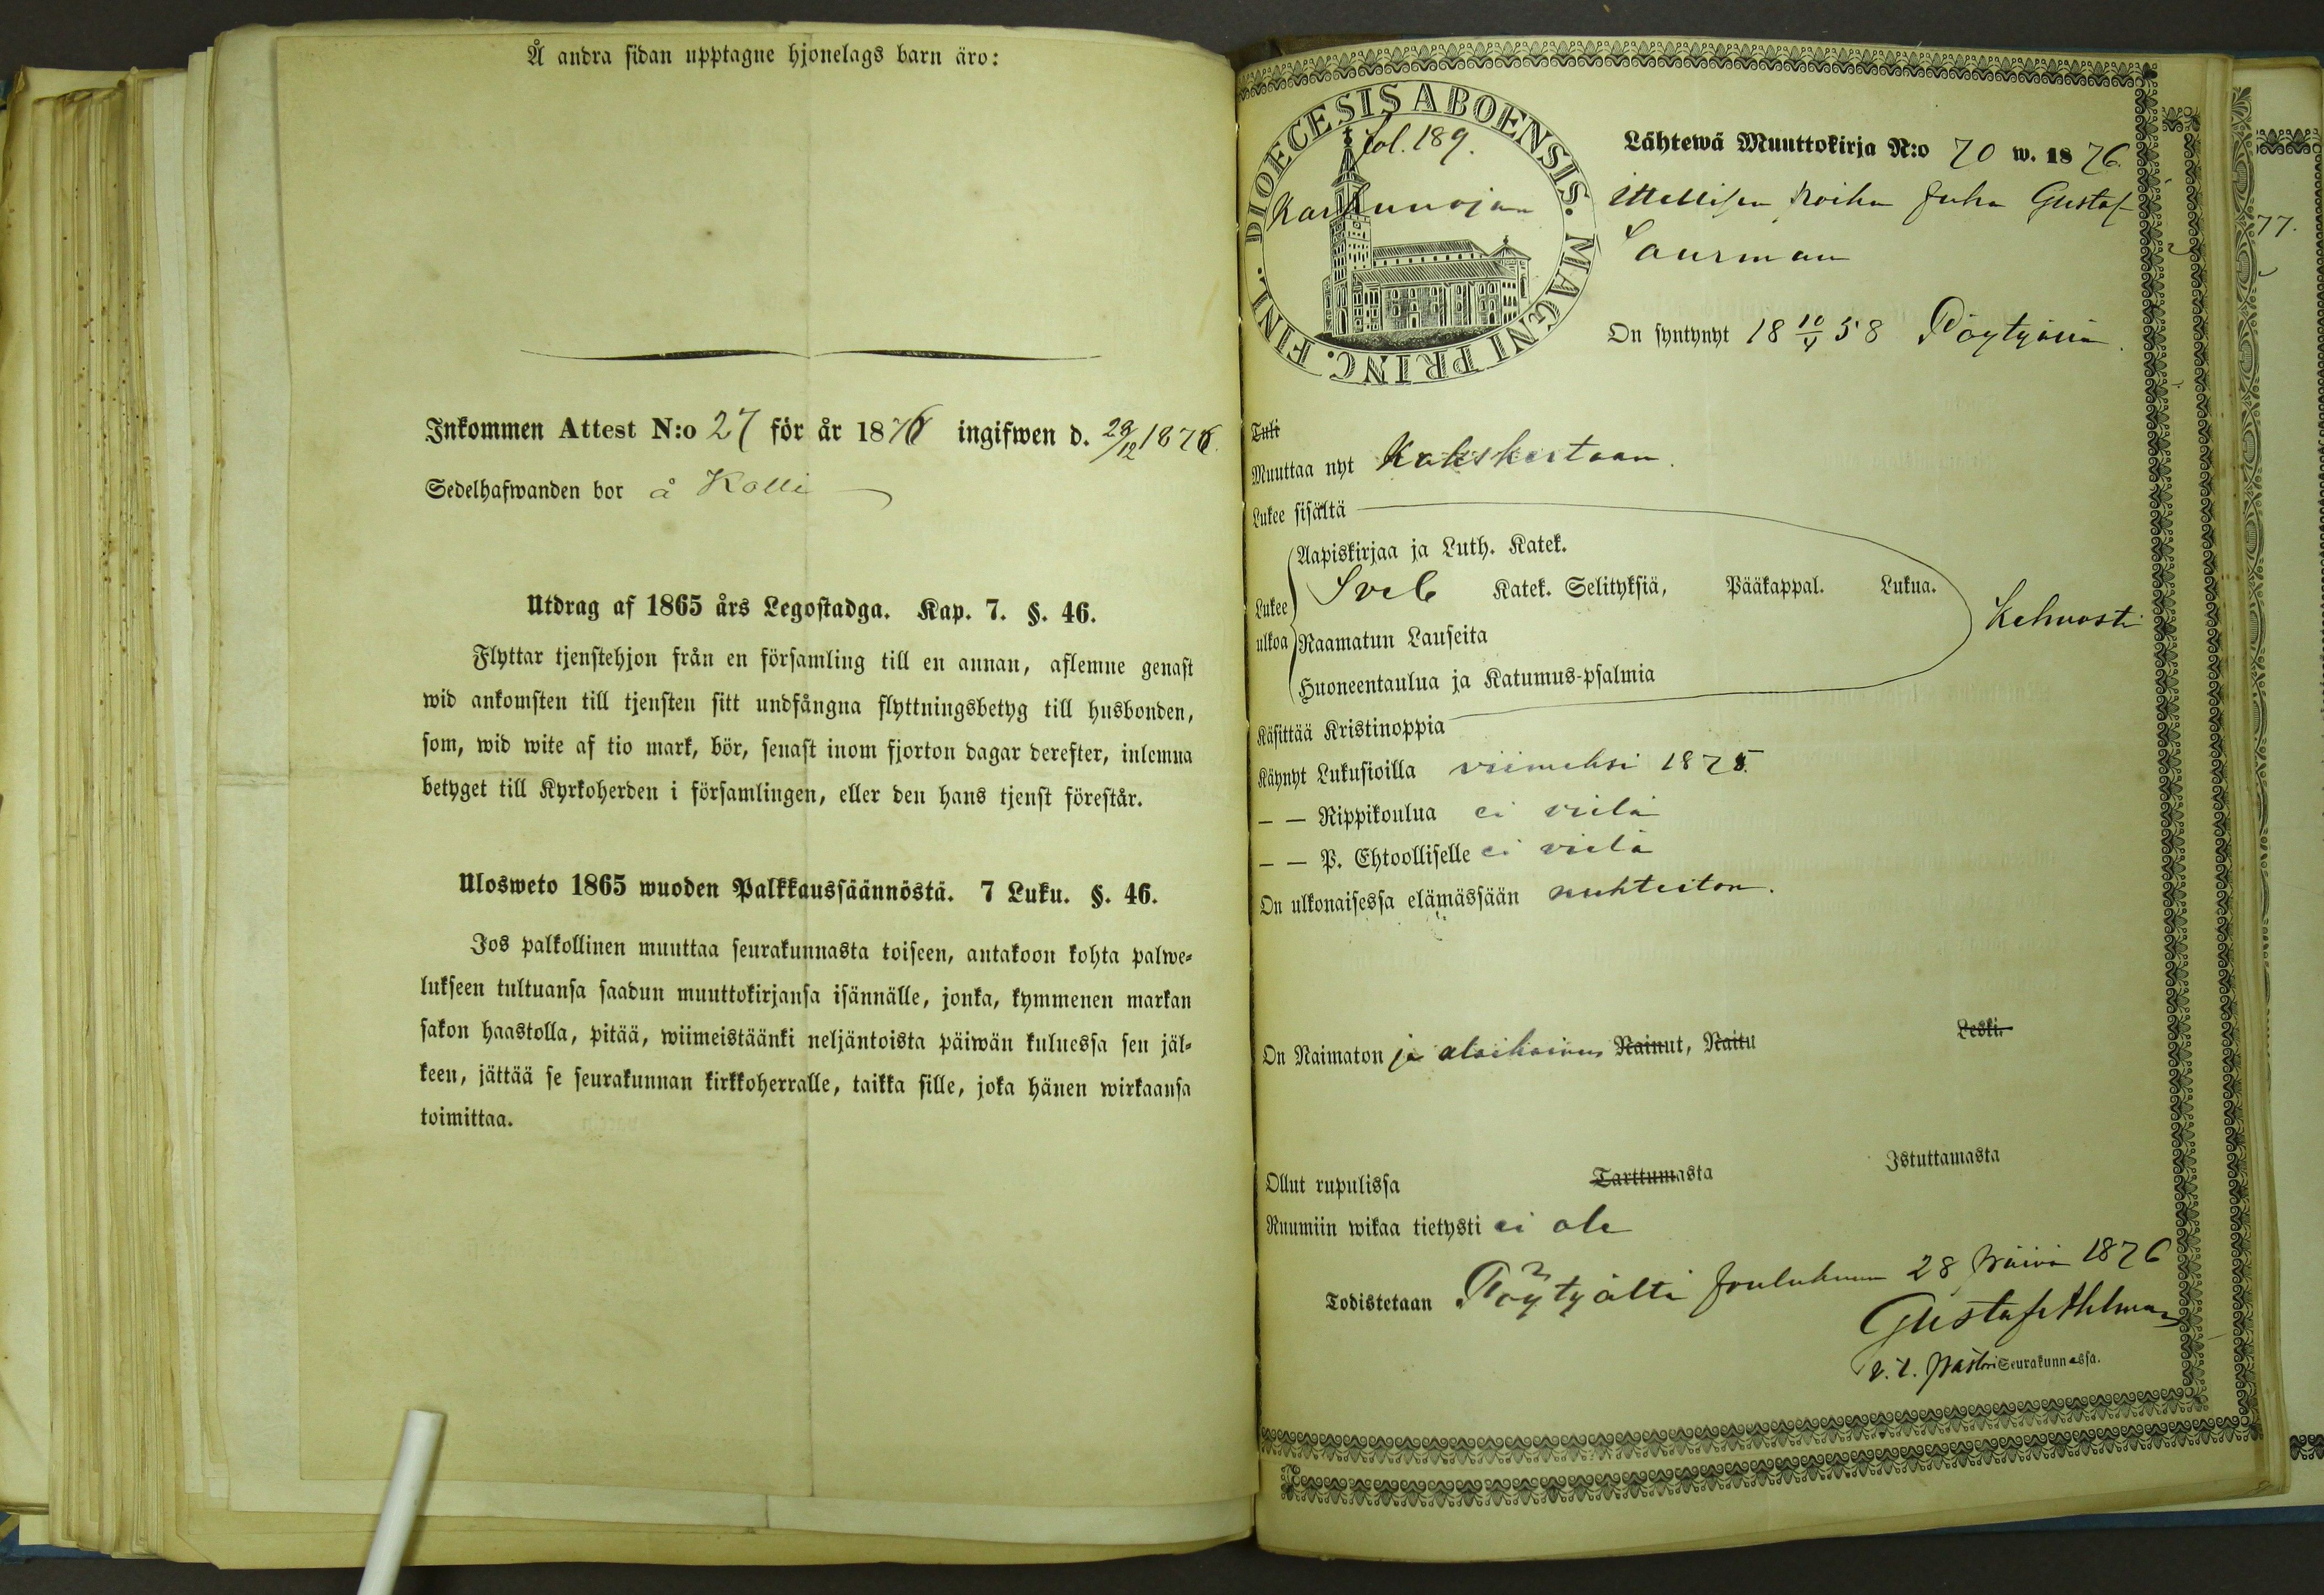 Å andra sidan upptagne hjonelags barn äro:
Inkommen Attest N:o 27 för år 1876 ingifwen d. 29/12 1876.
Sedelhafwanden bor å Kolli
Utdrag af 1865 års Legostadga. Kap. 7. §. 46.
Flyttar tjenstehjon från en församling till en annan, aflemne genast
wid ankomsten till tjensten sitt undfångna flyttningsbetyg till husbonden,
som, wid wite af tio mark, bör, senast inom fjorton dagar derefter, inlemna
betyget till Kyrkoherden i församlingen, eller den hans tjenst förestår.
Ulosweto 1865 wuoden Palkkaussäännöstä. 7 Luku. §. 46.
Jos palkollinen muuttaa seurakunnasta toiseen, antakoon kohta palwe-
lukseen tultuansa saadun muuttokirjansa isännälle, jonka, kymmenen markan
sakon haastolla, pitää, wiimeistäänki neljäntoista päiwän kuluessa sen jäl-
keen, jättää se seurakunnan kirkkoherralle, taikka sille, joka hänen wirkaansa
toimittaa.
DIOECESIS ABOENSIS. MAGNI PRINC. FINL.
fol. 189.
Karhunojan
Lähtewä Muuttokirja N:o 70 w. 1876.
ittellisen poika Juha Gustaf
Saurman
On syntynyt 18 10/4 58 Pöytyällä.
77.
Tuli
Muuttaa nyt Kakskertaan.
Lukee sisältä
Aapiskirjaa ja Luth. Katek.
Lukee ulkoa Sveb Katek. Selityksiä, Pääkappal. Lukua.
Kehnosti
Raamatun Lauseita
Huoneentaulua ja Katumus-psalmia
Käsittää Kristinoppia
Käynyt Lukusioilla viimeksi 1875.
— — Rippikoulua ei vielä
— — P. Ehtoolliselle ei vielä
On ulkonaisessa elämässään nuhteeton.
On Naimaton ja alaikäinen Nainut, Naitu Leski.
Ollut rupulissa Tarttumasta Istuttamasta
Ruumiin wikaa tietysti ei ole
Todistetaan Pöytyältä Joulukuun 28 päivä 1876
Gustaf Ahlman
v. t. pastori Seurakunnassa.